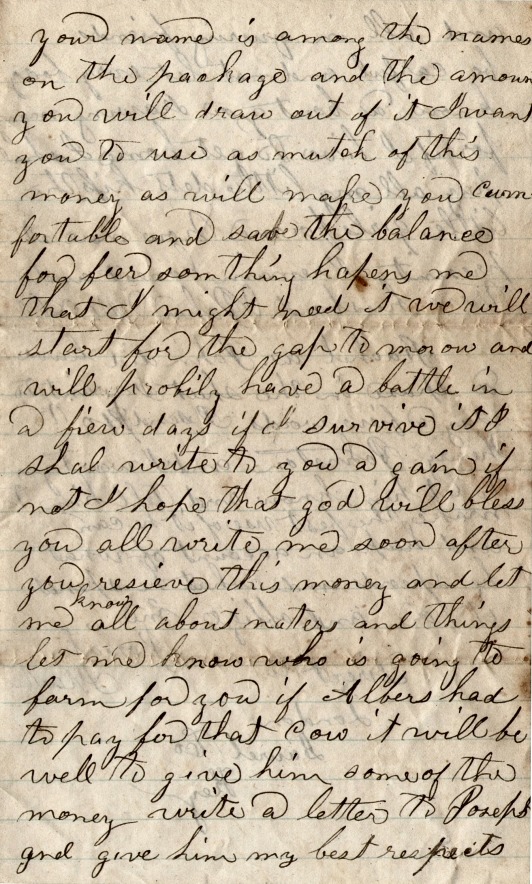 your name is among the names
on the package and the amoun
you will draw out of it I want
you to use as mutch of this
money as will make you cum
fortable and save the balance
for feer somthing hapens me
that I might need it we will
start for the gap to morow and
will probily have a battle in
a fiew days if I survive it I
shal write to you a gain if
not I hope that god will bless
you all write me soon after
you resieve this money and let
me know all about maters and things
let me know who is going to
farm for you if Albers had
to pay for that cow it will be
well to give him some of the
money write a letter to Joseph
and give him my best respects